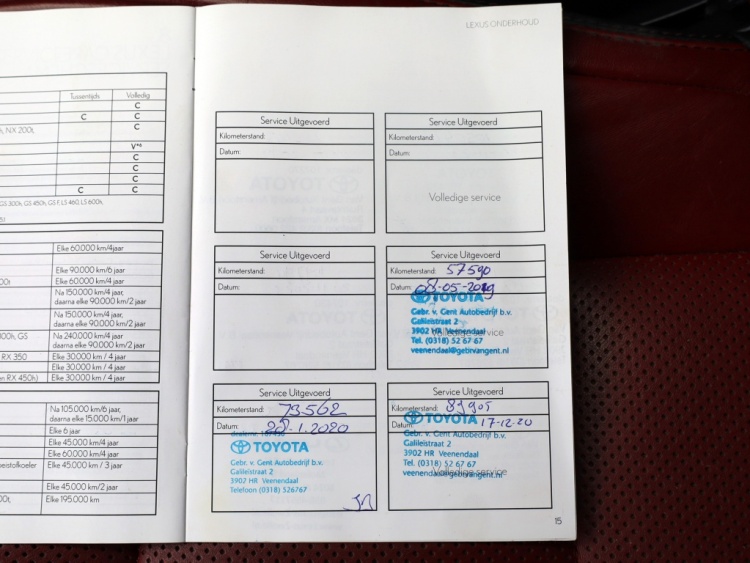 LEXUS ONDERHOUD
Tussentijds Volledig
C
C C
NX 200t, C
V*⁶
C
C
C
C C
GS 300h, GS 450h, GS F, LS 460, LS 600h,
Elke 60.000 km/4jaar
Elke 90.000 km/6 jaar
Elke 60.000 km/4 jaar
Na 150.000 km/4 jaar,
daarna elke 90.000 km/2 jaar
Na 150.000 km/4 jaar
daarna elke 90.000 km/2 jaar
300h, GS Na 240.000 km/4 jaar
daarna elke 90.000 km/2 jaar
RX 350 Elke 30.000 km / 4 jaar
Elke 30.000 km / 4 jaar
RX 450h) Elke 30.000 km / 4 jaar
Na 105.000 km/6 jaar,
daarna elke 15.000 km/1 jaar
Elke 6 jaar
Elke 45.000 km/4 jaar
Elke 60.000 km/4 jaar
Elke 45.000 km / 3 jaar
Elke 45.000 km/2 jaar
Elke 195.000 km
Service Uitgevoerd
Kilometerstand:
Datum:
Service Uitgevoerd
Kilometerstand:
Datum:
Volledige service
Service Uitgevoerd
Kilometerstand:
Datum:
Service Uitgevoerd
Kilometerstand: 57590
Datum: 08-05-2019
TOYOTA
Gebr. v. Gent Autobedrijf b.v.
Galileistraat 2
3902 HR Veenendaal
Volledige service
Tel. (0318) 52 67 67
veenendaal@gebrvangent.nl
Service Uitgevoerd
Kilometerstand: 73562
Datum: 28.1.2020
TOYOTA
Gebr. v. Gent Autobedrijf b.v.
Galileistraat 2
3902 HR Veenendaal
Telefoon (0318) 526767
Service Uitgevoerd
Kilometerstand: 83905
Datum: 17-12-20
TOYOTA
Gebr. v. Gent Autobedrijf b.v.
Galileistraat 2
3902 HR Veenendaal
Tel. (0318) 52 67 67
Volledige service
veenendaal@gebrvangent.nl
15